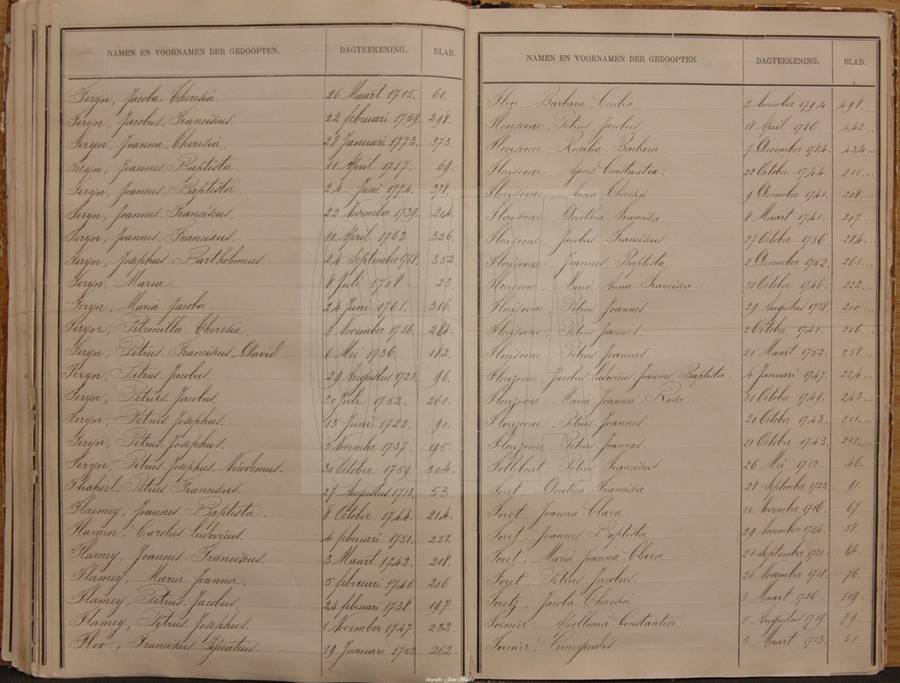 NAMEN EN VOORNAMEN DER GEDOOPTEN. DAGTEEKENING. BLAD.
Feryn, Jacoba Theresia 26 Maart 1715. 61.
Feryn, Jacobus Franciscus. 22 februari 1759. 298.
Feryn, Joanna Theresia. 28 Januari 1773. 373.
Feryn, Joannes Baptista 11 April 1717. 69.
Feryn, Joannes Baptista 24 Juni 1774. 378.
Feryn, Joannes Franciscus. 22 November 1739. 204.
Feryn, Joannes Franciscus. 10 April 1763. 326.
Feryn, Josephus Bartholomeus 24 September 1768. 352.
Feryn, Maria 8 Juli 1708. 23.
Feryn, Maria Jacoba. 24 Juni 1761. 316.
Feryn, Petronilla Theresia. 8 November 1756. 284.
Feryn, Petrus Franciscus David 6 Mei 1736. 182.
Feryn, Petrus Jacobus. 29 Augustus 1723. 96.
Feryn, Petrus Jacobus. 30 Juli 1752. 260.
Feryn, Petrus Josephus. 13 Juni 1722. 90.
Feryn, Petrus Josephus. 3 November 1737. 195.
Feryn, Petrus Josephus Nicodemus. 30 October 1759. 304.
Petrus Franciscus. 27 Augustus 1713. 53.
Flamey, Joannes Baptista. 8 October 1744. 214.
Carolus Ludovicus. 4 februari 1751. 251.
Flamey, Joannes Franciscus 3 Maart 1742. 208.
Flamey, Maria Joanna. 5 februari 1741. 206.
Flamey, Petrus Jacobus. 24 februari 1738. 197.
Flamey, Petrus Josephus. 1 November 1747. 232.
Floo, Franciscus Ignatius. 19 Januari 1752 262.
NAMEN EN VOORNAMEN DER GEDOOPTEN. DAGTEEKENING. BLAD.
Barbara Cecilia 2 November 1794. 498.
Florisoone Petrus Jacobus 18 April 1786. 442.
Florisoone Rosalia Barbara 7 December 1784. 434.
Florisoone Agnes Constantia. 22 October 1744. 215.
Florisoone Anna Theresia 9 December 1741. 208.
Florisoone Dorothea Francisca 8 Maart 1741. 207.
Florisoone Jacobus Franciscus 27 October 1756. 284.
Florisoone Joannes Baptista 2 December 1752. 261.
Florisoone Maria Anna Francisca 20 October 1746. 222.
Florisoone Petrus Joannes 29 Augustus 1738. 200.
Florisoone Petrus Joannes 2 October 1740. 206.
Florisoone Petrus Joannes 20 Maart 1752. 258.
Florizoone Jacobus Ludovicus Joannes Baptista 4 Januari 1747. 224.
Florizoone Maria Joanna Rosa 30 October 1749. 243.
Florizoone Petrus Joannes 20 October 1743. 211.
Florizoone Petrus Joannes 21 October 1743. 211.
Follebout Petrus Franciscus 26 Mei 1712. 46.
Foret Dorothea Francisca 28 September 1722. 91.
Foret Joanna Clara 11 November 1716. 67.
Foret Joannes Baptista 29 November 1714. 58.
Foret Maria Joanna Clara 21 September 1720. 84.
Foret Petrus Jacobus 26 November 1718. 76.
Foretz Jacoba Theresia 3 Maart 1726. 119.
Fournier Apollonia Constantia 5 Augustus 1719. 79.
Fournier 3 Maart 1713. 50